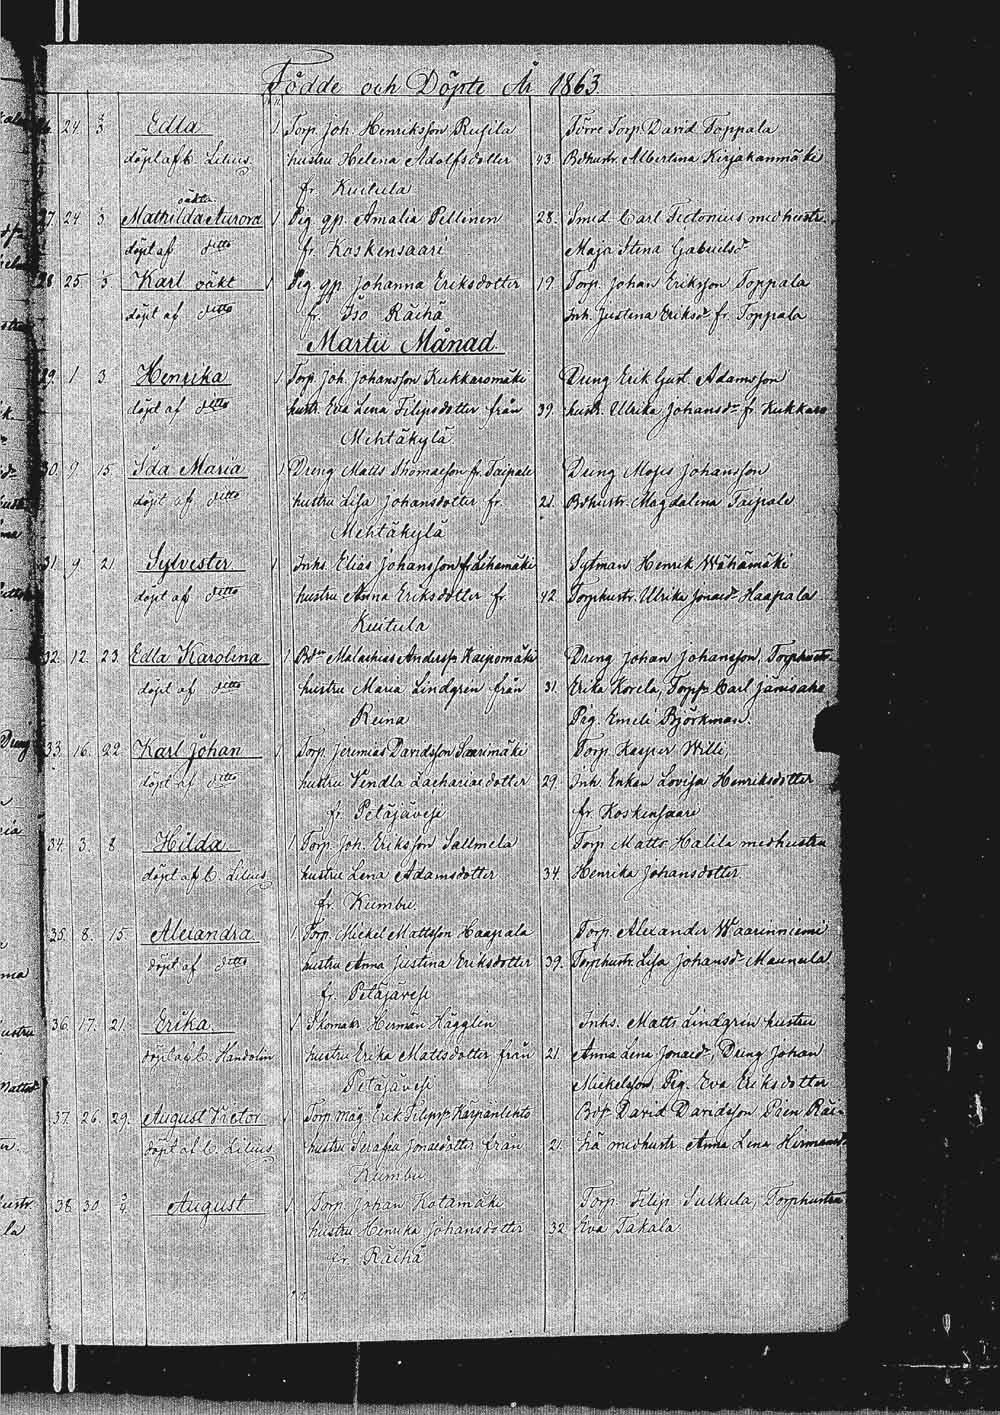 Födde och Döpte År 1863.
24. 1/3 Edla 1 Torp. Joh. Henriksson Rusila Förre Torp. David Toppala
döpt af C. Lilius. hustru Helena Adolfsdotter 43. Bdhustr. Albertina Kirjakanmäki
fr. Kuitula
oäkta
27. 24. 1/3 Mathilda Aurora 1 Pig. gp. Amalia Pellinen 28. Smed Carl Tectonius med hustr.
döpt af ditto fr. Koskensaari Maja Stina Gabrielsdr
28 25. 1/3 Karl oäkt 1 Pig. gp. Johanna Eriksdotter 19 Torp. Johan Eriksson Toppala
döpt af ditto fr. Iso Räihä Inh. Justina Eriksdr fr. Toppala
Martii Månad.
29. 1 3. Henrika 1 Torp. Joh. Johansson Kukkaromäki Dreng Erik Gust. Adamsson
döpt af ditto hustr. Eva Lena Filipsdotter från 39. hustr. Ulrika Johansdr fr. Kukkaro
Mehtäkylä.
30. 9. 15. Ida Maria 1 Dreng Matts Thomasson fr. Taipale Dreng Moses Johansson
döpt af ditto hustru Lisa Johansdotter fr. 21. Bdhustr. Magdalena Taipale
Mehtäkylä
31. 9. 21. Sylvester 1 Inhs. Elias Johansson fr. Lihamäki Sytman Henrik Wähämäki
döpt af ditto hustru Anna Eriksdotter fr 42. Torphustr. Ulrika Jonaedr Haapala
Kuitula
32. 12. 23. Edla Karolina 1 Bdn Malachias Anderss. Karpomäki Dreng Johan Johansson, Torphustr.
döpt af ditto hustru Maria Lindgrin från 31. Erika Korela, Torpp. Carl
Reina Pig. Emeli Björkman.
33. 16. 22. Karl Johan 1 Torp. Jeremias Davidsson Saarimäki Torp. Kasper Willi,
döpt af ditto hustru Vendla Zachariaedotter 29. Inh. Enkan Lovisa Henriksdotter
fr. Petäjävesi fr. Koskensaari
34. 3. 8 Hilda 1 Torp. Joh. Eriksson Sallmela Torp. Matts Halila med hustru
döpt af C. Lilius, hustru Lena Adamsdotter 34. Henrika Johansdotter
fr. Kumbu.
35. 8. 15. Alexandra 1 Torp. Mickel Mattsson Haapala Torp. Alexander Waarinniemi
döpt af ditto hustru Anna Justina Eriksdotter 39. Torphustr. Lisa Johansdr Maunula
fr. Petäjävesi
36. 17. 21. Erika 1 Skomakr. Herman Hägglin Inhs. Matts Lindgrin hustru
döpt af C. Handolin hustru Erika Mattsdotter från 21. Anna Lena Jonaedr, Dreng Johan
Petäjävesi Mickelsson, Pig. Eva Eriksdotter
37. 26. 29. August Victor 1 Torp. mag. Erik Filipss. Karjänlehto Bdn David Davidsson, Räi-
döpt af C. Lilius hustru Serafia Jonaedotter från 21. hä med hustr. Anna Lena
Kumbu.
38. 30. 3/4 August 1 Torp. Johan Kotamäki Torp. Filip Sulkula, Torphustru
hustru Henrika Johansdotter 32. Eva Takala
fr. Räihä